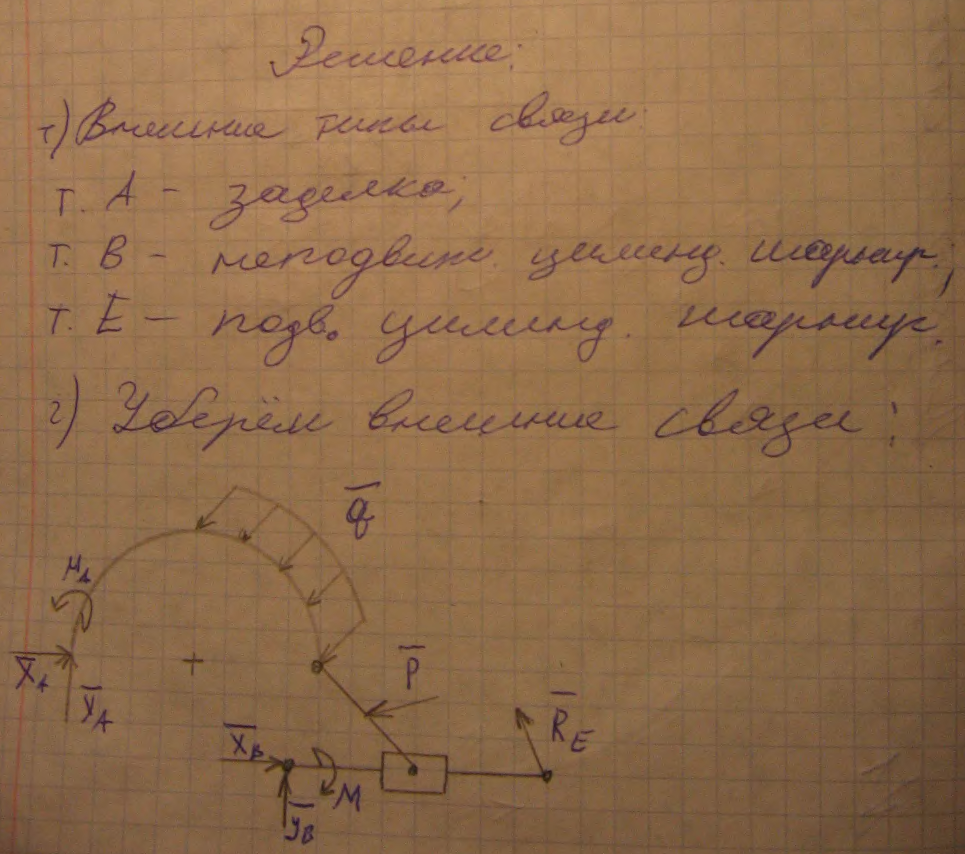 Решение:
1) Внешние типы связи:
т. A - заделка;
т. B - неподвиж. цилинд. шарнир.;
т. E - подв. цилинд. шарнир.
2) Уберём внешние связи:
q
M_A
P
X_A
Y_A
R_E
X_B
M
Y_B